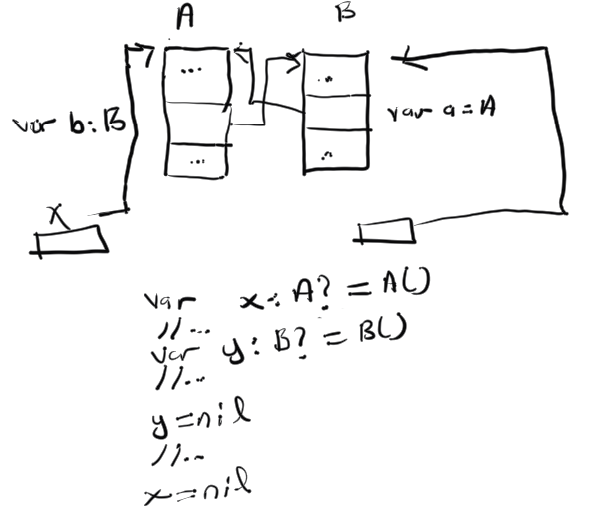 A B
...
...
var b:B
var a=A
...
...
X
var x: A? = A()
//...
var y: B? = B()
//...
y=nil
//...
x=nil